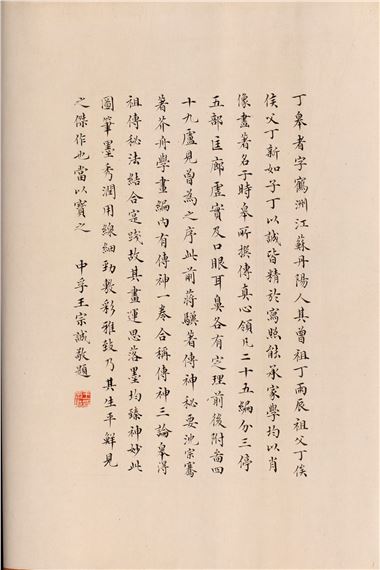 丁皋者字鶴洲江蘇丹陽人其曾祖丁雨辰祖父丁俟
侯父丁新如子丁以誠皆精於寫照能承家學均以肖
像畫著名于時皋所撰傳真心領凡二十五編分三停
五部匡廓虛實及口眼耳鼻各有定理前後附圖四
十九盧見曾為之序此前蔣驥著傳神秘要沈宗騫
著芥舟學畫編內有傳神一卷合稱傳神三論皋得
祖傳秘法結合實踐故其畫運思落墨均臻神妙此
圖筆墨秀潤用線細勁敷彩雅致乃其生平鮮見
之傑作也當以寶之 中孚王宗誠敬題